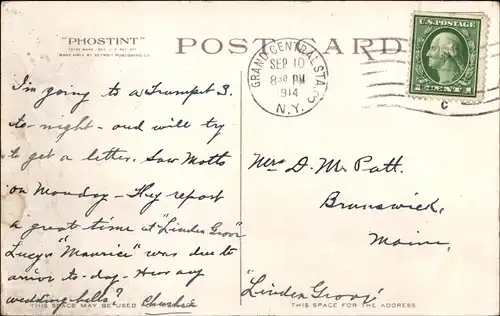 "PHOSTINT"
POSTCARD
MADE ONLY BY DETROIT PUBLISHING CO.
GRAND CENTRAL STA.
SEP 10
8 30 PM
1914
N.Y.
U.S. POSTAGE
1 CENT 1
C
I'm going to a Trumpet S.
to-night - and will try
to get a letter. Saw Motts
on Monday - They report
a great time at "Linden Grove"
Lucy's "Maurice" was due to
arrive to-day - How any
wedding bells?
Mrs D. M. Patt.
Brunswick,
Maine,
"Linden Grove"
THIS SPACE MAY BE USED
THIS SPACE FOR THE ADDRESS